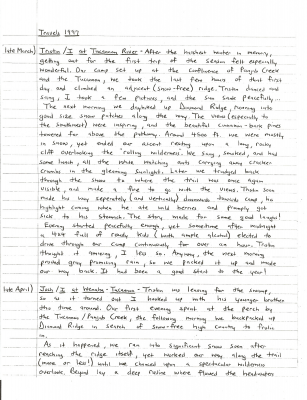 Travels 1997
(late March) Tristin / I at Tucannon River - After the harshest winter in memory,
getting out for the first trip of the season felt especially
wonderful. Our camp set up at the confluence of Panjab Creek
and the Tucannon, we took the last few hours of that first
day and climbed an adjacent (snow-free) ridge. Tristin danced and
sang, I took a few pictures, and the sun sank peacefully...
The next morning we dayhiked up Diamond Ridge, running into
good size snow patches along the way. The views (especially to
the southwest) were inspiring, and the beautiful cinnamon-bark pines
towered far above the pathway. Around 4600 ft. we were mostly
in snow, yet ended our ascent resting upon a long, rocky
cliff overlooking the rolling wilderness. We sang, smoked, and had
some lunch, all the while watching ants carrying away cracker
crumbs in the gleaming sunlight. Later we trudged back
through the snow to where the trail was once again
visible, and made a fire to go with the views. Tristin soon
made his way seperately (and vertically) downwards towards camp, his
highlight coming when he ate wild berries and promptly got
sick to his stomach. The story made for some good laughs!
Evening started peacefully enough, yet sometime after midnight
a 4x4 full of rowdy kids (with ample alcohol) elected to
drive through our camp continuously for over an hour. Tristin
thought it amusing, I less so. Anyway, the next morning
provided gray promising rain, so we packed it up and made
our way back. It had been a good start to the year!
(late April) Josh / I at Wenaha-Tucannon - Tristin was leaving for the swamp,
so as it turned out I hooked up with his younger brother
this time around. Our first evening spent at the perch by
the Tucannon / Panjab Creek, the following morning we backpacked up
Diamond Ridge in search of snow-free high country to frolic
in.
As it happened, we ran into significant snow soon after
reaching the ridge itself, yet worked our way along the trail
(more or less!) until we chanced upon a spectacular wilderness
overlook. Beyond lay a deep ravine where flowed the headwaters